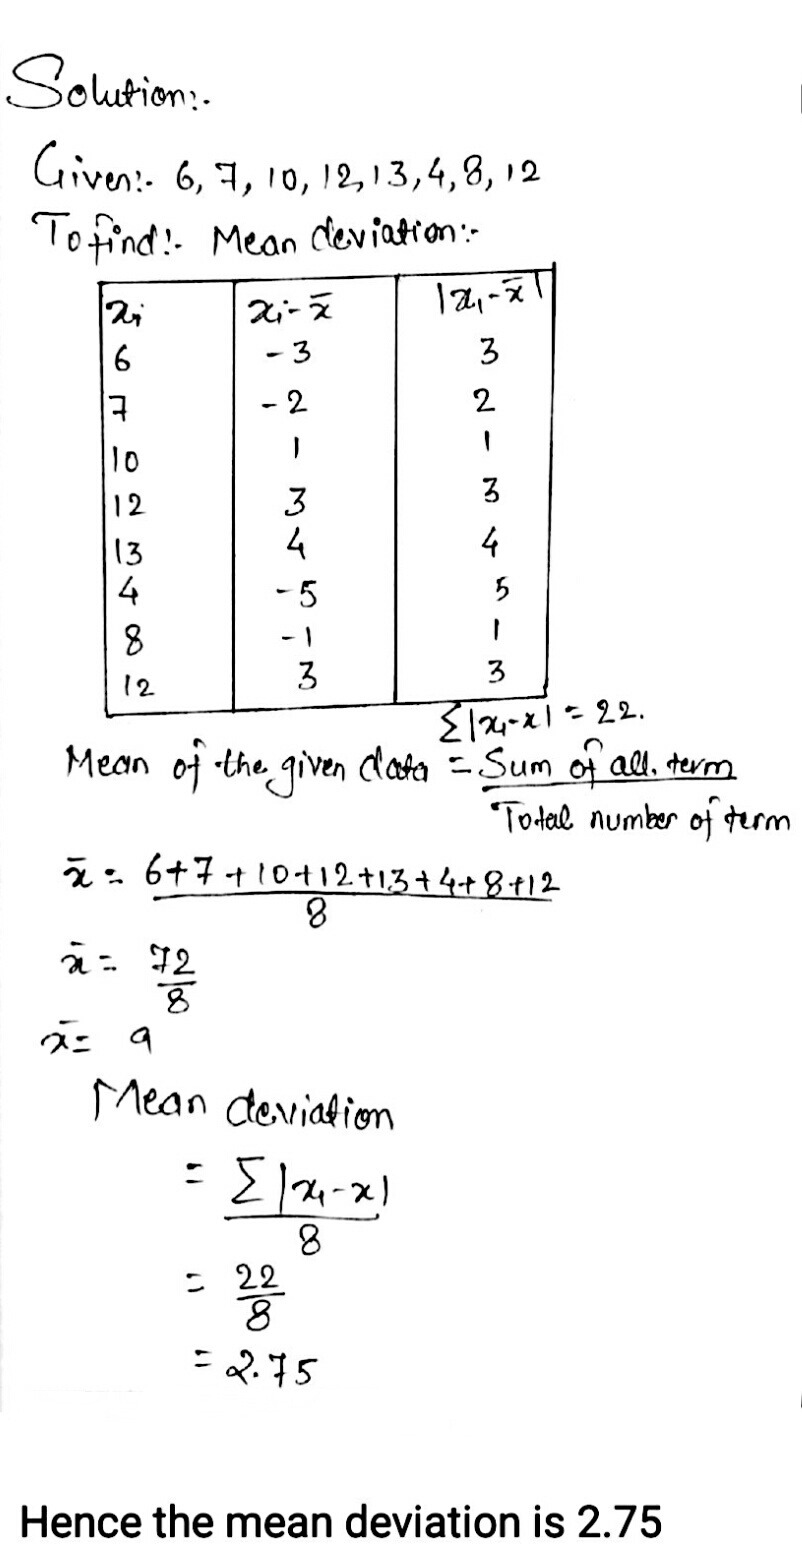 Solution:-
Given:- 6, 7, 10, 12, 13, 4, 8, 12
To find:- Mean deviation:-
xᵢ xᵢ-x̄ |xᵢ-x̄|
6 -3 3
7 -2 2
10 1 1
12 3 3
13 4 4
4 -5 5
8 -1 1
12 3 3
Σ|xᵢ-x| = 22.
Mean of the given data = Sum of all. term
Total number of term
x̄ = 6+7+10+12+13+4+8+12
8
x̄ = 72
8
x̄ = 9
Mean deviation
= Σ|xᵢ-x|
8
= 22
8
= 2.75
Hence the mean deviation is 2.75